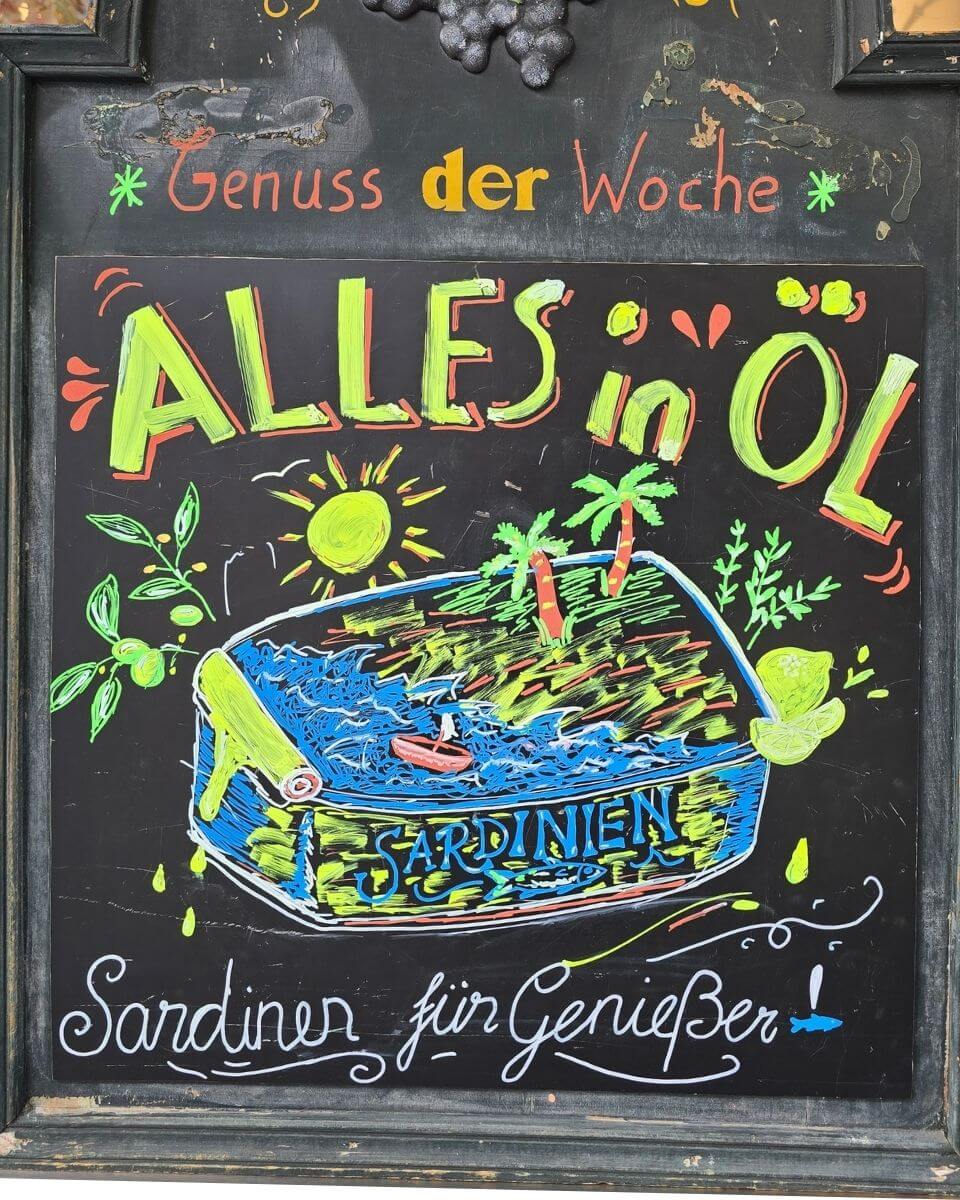 Genuss der Woche
ALLES in ÖL
SARDINIEN
Sardinen für Genießer!